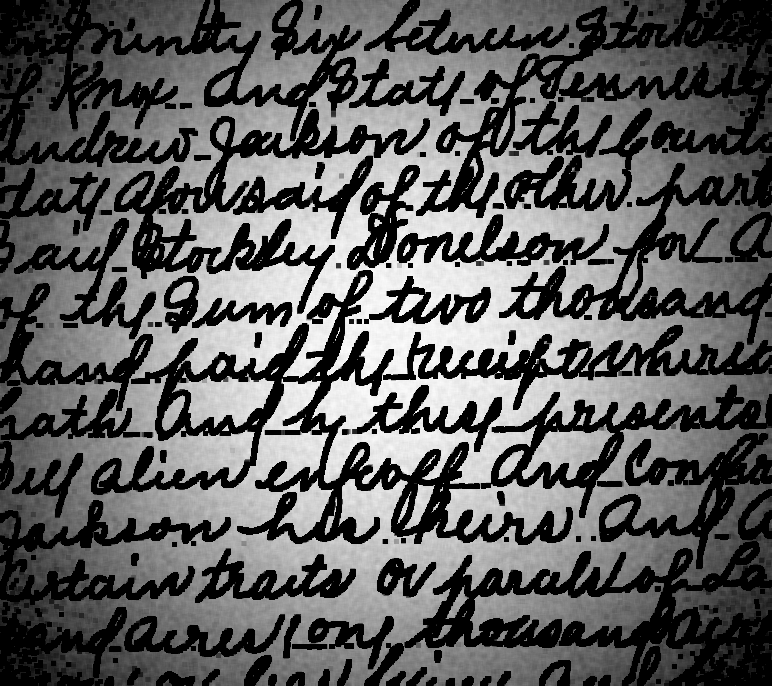 and ninety Six between Stockley
of Knox and State of Tennessee
Andrew Jackson of the County
State aforesaid of the other part
Said Stockley Donelson for
of the Sum of two thousand
hand paid the receipt whereof
hath and by these presents
Sell alien enfeoff and Confir
Jackson his heirs and
Certain tracts or parcels of La
sand acres one thousand acres